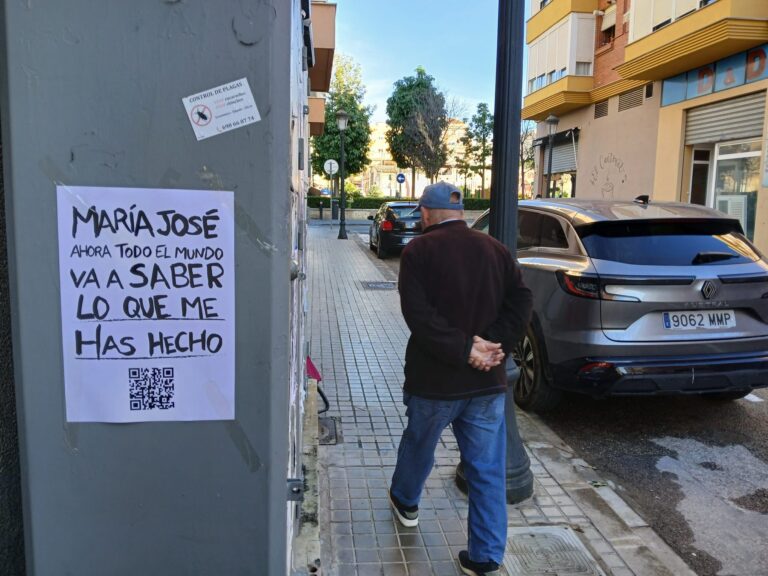 CONTROL DE PLAGAS
MARÍA JOSÉ
AHORA TODO EL MUNDO
VA A SABER
LO QUE ME
HAS HECHO
9062 MMP